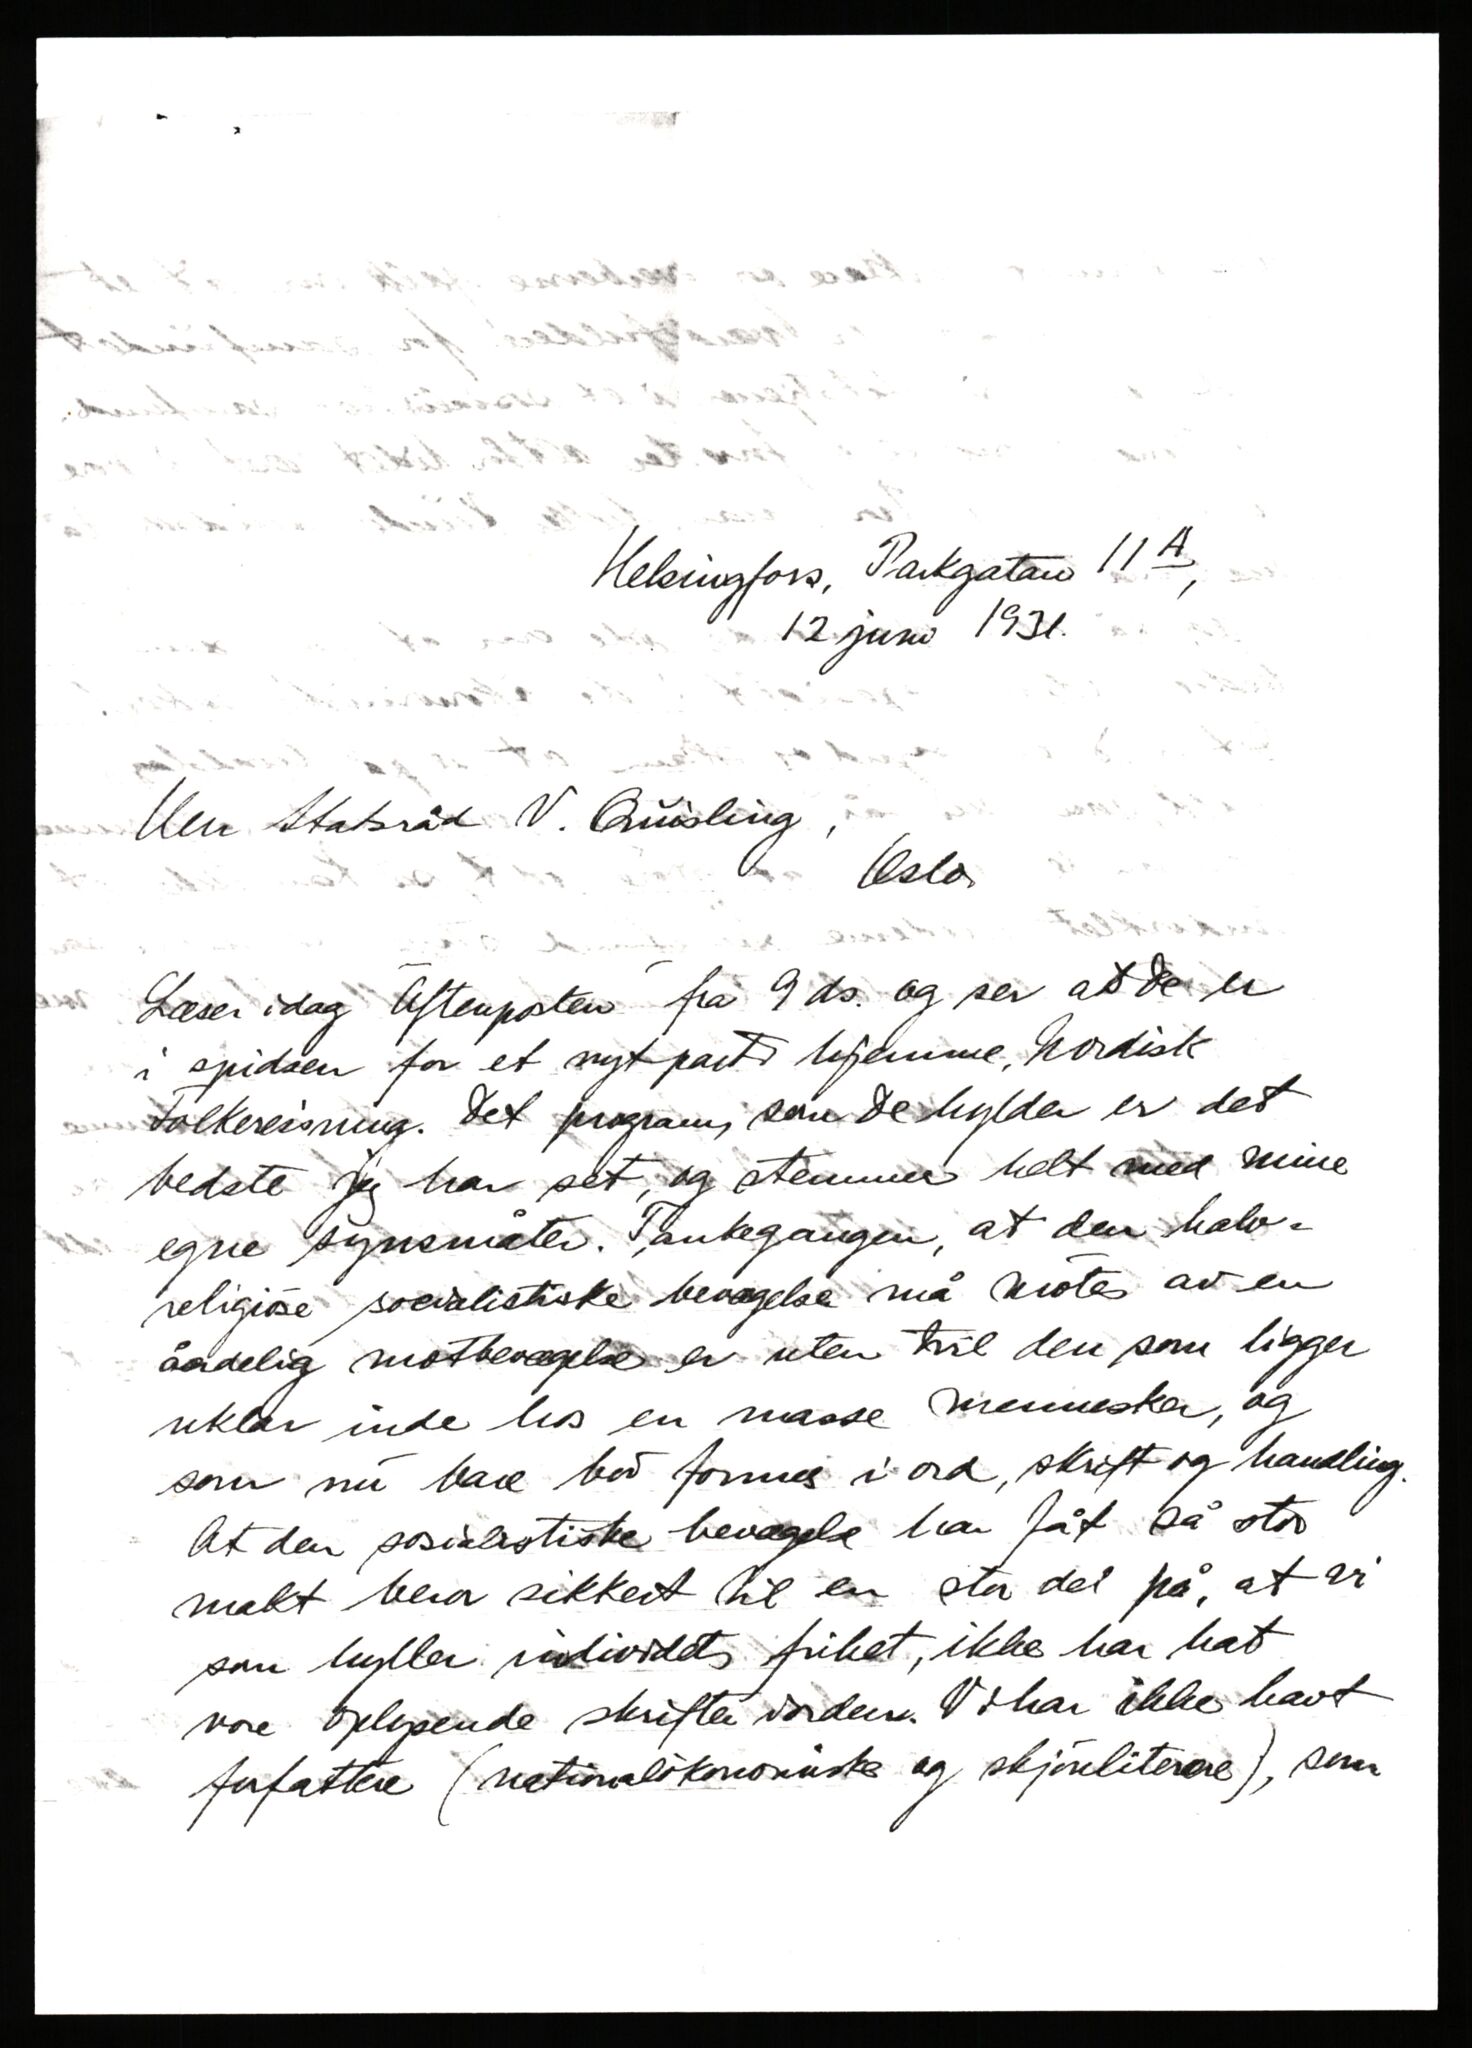 Helsingfors, Parkgatan 11 A,
12 juni 1931.
Herr Statsråd V. Quisling,
Oslo.
Læser idag "Aftenposten" fra 9 ds. og ser at De er
i spidsen for et nyt parti hjemme, Nordisk
Folkereisning. Det program, som De hylder er det
bedste jeg har set, og stemmer helt med mine
egne synsmåter. Tankegangen, at den halv-
religiöse socialistiske bevægelse må mötes av en
åndelig motbevægelse er uten tvil den som ligger
uklar inde hos en masse mennesker, og
som nu bare bör formes i ord, skrift og handling.
At den sosialistiske bevægelse har fåt så stor
makt beror sikkert til en stor del på, at vi
som hyller individets frihet, ikke har hat
vore oplysende skrifter iorden. Vi har ikke havt
forfattere (nationalökonomiske og skjönliterære), som